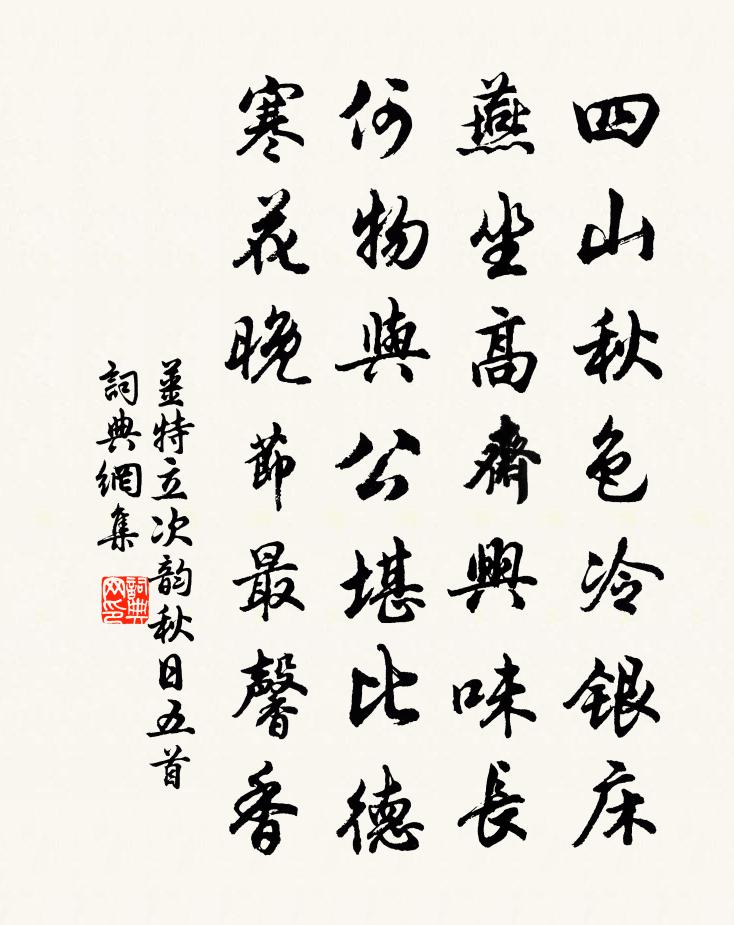 四山秋色冷銀床
燕坐高齋興味長
何物與公堪比德
寒花晚節最馨香
姜特立次韵秋日五首
詞典網集
詞典網印